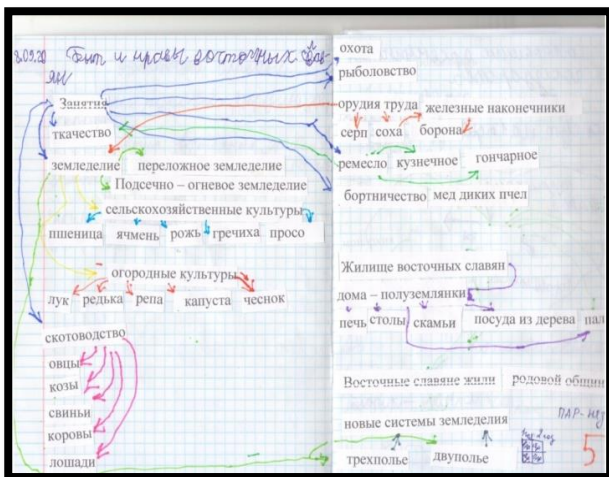 8.09.20 Быт и нравы восточных славян
Занятия
ткачество
земледелие переложное земледелие
Подсечно – огневое земледелие
сельскохозяйственные культуры
пшеница ячмень рожь гречиха просо
огородные культуры
лук редька репа капуста чеснок
скотоводство
овцы
козы
свиньи
коровы
лошади
охота
рыболовство
орудия труда железные наконечники
серп соха борона
ремесло кузнечное гончарное
бортничество мед диких пчел
Жилище восточных славян
дома – полуземлянки
печь столы скамьи посуда из дерева пал
Восточные славяне жили родовой общин
ПАР-
новые системы земледелия
трехполье двуполье
5